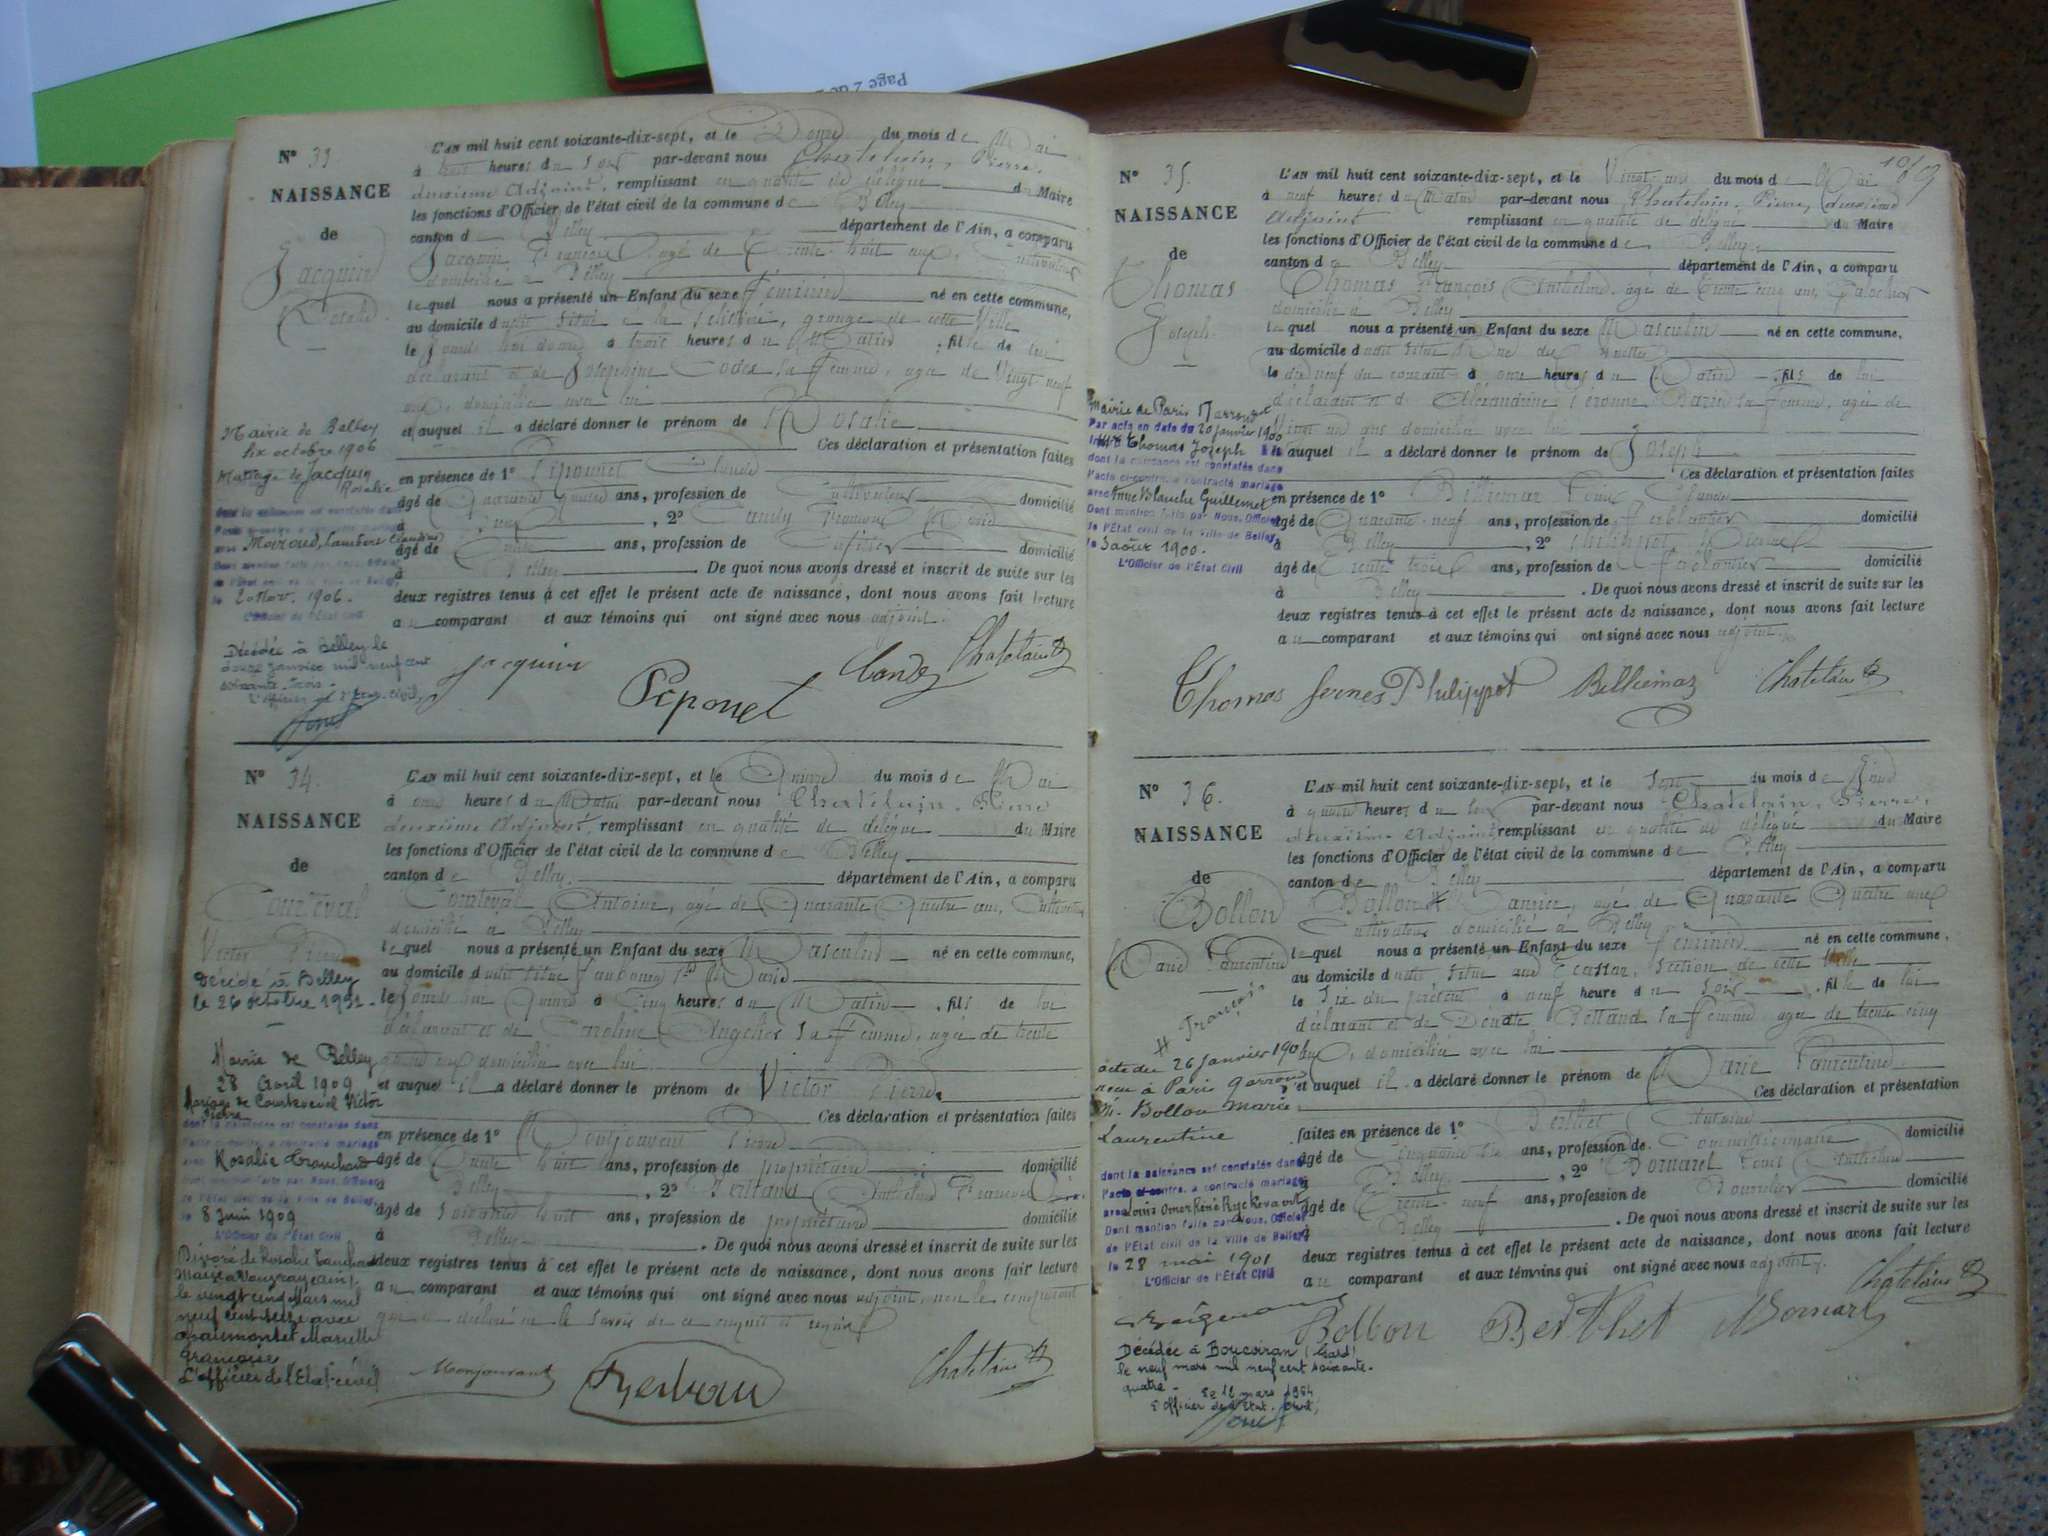 Page 2 de
N° 33
NAISSANCE
de
Jacquin
Rosalie
L'AN mil huit cent soixante-dix-sept, et le Douze du mois de Mai
à trois heures du Soir par-devant nous Chatelain, Pierre,
deuxième Adjoint, remplissant en qualité de délégué du Maire
les fonctions d'Officier de l'état civil de la commune de Belley
canton de Belley département de l'Ain, a comparu
Jacquin François âgé de trente huit ans, Cultivateur
domicilié à Belley
lequel nous a présenté un Enfant du sexe féminin né en cette commune,
au domicile dudit situé à la grange de cette Ville
le jourd'hui douze à trois heures du Matin, fille de lui
déclarant et de Joséphine sa femme, agée de Vingt-neuf
ans, domiciliée avec lui
et auquel il a déclaré donner le prénom de Rosalie
Ces déclaration et présentation faites
en présence de 1° Peponnet Claude
âgé de Quarante quatre ans, profession de Cultivateur domicilié
à 2° François
âgé de Trente ans, profession de domicilié
à Belley. De quoi nous avons dressé et inscrit de suite sur les
deux registres tenus à cet effet le présent acte de naissance, dont nous avons fait lecture
au comparant et aux témoins qui ont signé avec nous adjoint.
Jacquin Peponet Chatelain
Mairie de Belley
dix octobre 1906
Mariage de Jacquin
Rosalie
dont la naissance est constatée dans
l'acte ci-contre, a contracté mariage
avec Moiroud, Lambert Claudius
Dont mention faite par Nous, Officier
de l'État civil de la Ville de Belley,
le 2 Nov. 1906.
L'Officier de l'État Civil
Décédée à Belley le
douze janvier mil neuf cent
soixante-trois.
L'officier de l'état civil,
N° 34.
NAISSANCE
de
Courteval
Victor Pierre
L'AN mil huit cent soixante-dix-sept, et le Quinze du mois de Mai
à onze heures du Matin par-devant nous Chatelain, Pierre
deuxième Adjoint, remplissant en qualité de délégué du Maire
les fonctions d'Officier de l'état civil de la commune de Belley
canton de Belley. département de l'Ain, a comparu
Antoine, agé de Quarante Quatre ans, Cultivateur
domicilié à Belley
lequel nous a présenté un Enfant du sexe Masculin né en cette commune,
au domicile dudit situé faubourg
le jourd'hui Quinze à Cinq heures du Matin, fils de lui
déclarant et de Caroline sa femme, agée de trente
quatre ans domiciliée avec lui
et auquel il a déclaré donner le prénom de Victor Pierre
Ces déclaration et présentation faites
en présence de 1° Pierre
âgé de Trente huit ans, profession de propriétaire domicilié
à Belley, 2° Anthelme François
âgé de Soixante huit ans, profession de propriétaire domicilié
à Belley. De quoi nous avons dressé et inscrit de suite sur les
deux registres tenus à cet effet le présent acte de naissance, dont nous avons fait lecture
au comparant et aux témoins qui ont signé avec nous adjoint, non le comparant
qui a déclaré ne le savoir de ce enquis et requis
Chatelain
Décédé à Belley
le 26 octobre 1951.
Mairie de Belley
28 Avril 1909
Mariage de Victor
Pierre
dont la naissance est constatée dans
l'acte ci-contre, a contracté mariage
avec Rosalie Tranchand
Dont mention faite par Nous, Officier
de l'État civil de la Ville de Belley,
le 8 Juin 1909
L'Officier de l'État Civil
Divorcé de Rosalie
le vingt cinq Mars mil
neuf cent seize avec
Marcelle
Françoise
L'officier de l'État-civil
10/19
N° 35.
NAISSANCE
de
Thomas
Joseph
L'AN mil huit cent soixante-dix-sept, et le Vingt-un du mois de Mai
à neuf heures du Matin par-devant nous Chatelain, Pierre, deuxième
Adjoint remplissant en qualité de délégué du Maire
les fonctions d'Officier de l'état civil de la commune de Belley
canton de Belley département de l'Ain, a comparu
Thomas François Anthelme agé de trente cinq ans, Galochier
domicilié à Belley
lequel nous a présenté un Enfant du sexe Masculin né en cette commune,
au domicile dudit situé Rue des
le dix neuf du courant à onze heures du Matin, fils de lui
déclarant et de Alexandrine sa femme, agée de
Vingt ans domiciliée avec lui
et auquel il a déclaré donner le prénom de Joseph
Ces déclaration et présentation faites
en présence de 1° Belliemaz Louis Claude
âgé de Quarante-neuf ans, profession de ferblantier domicilié
à Belley, 2° Philippot Pierre
âgé de Trente trois ans, profession de ferblantier domicilié
à Belley. De quoi nous avons dressé et inscrit de suite sur les
deux registres tenus à cet effet le présent acte de naissance, dont nous avons fait lecture
au comparant et aux témoins qui ont signé avec nous adjoint.
Thomas Philippot Belliemaz Chatelain
Mairie de Paris
Par acte en date du 20 janvier 1900
Thomas Joseph
dont la naissance est constatée dans
l'acte ci-contre, a contracté mariage
avec Anne Blanche Guillemet
Dont mention faite par Nous, Officier
de l'État civil de la Ville de Belley,
le 3 août 1900.
L'Officier de l'État Civil
N° 36.
NAISSANCE
de
Bollon
Marie Laurentine
# François
L'AN mil huit cent soixante-dix-sept, et le Sept du mois de Juin
à quatre heures du Soir par-devant nous Chatelain, Pierre,
deuxième Adjoint remplissant en qualité de délégué du Maire
les fonctions d'Officier de l'état civil de la commune de Belley
canton de Belley département de l'Ain, a comparu
Bollon # agé de Quarante Quatre ans
Cultivateur domicilié à Belley
lequel nous a présenté un Enfant du sexe féminin né en cette commune,
au domicile dudit situé section de cette Ville
le Six du présent à neuf heure du Soir, fille de lui
déclarant et de sa femme agée de trente cinq
ans, domiciliée avec lui
et auquel il a déclaré donner le prénom de Marie Laurentine
Ces déclaration et présentation
faites en présence de 1° Berthet Antoine
âgé de Cinquante six ans, profession de Commissionnaire domicilié
à Belley, 2° Bornarel Louis Anthelme
âgé de Trente-neuf ans, profession de Bourrelier domicilié
à Belley. De quoi nous avons dressé et inscrit de suite sur les
deux registres tenus à cet effet le présent acte de naissance, dont nous avons fait lecture
au comparant et aux témoins qui ont signé avec nous adjoint.
Bollon Berthet Bornarel Chatelain
acte du 26 janvier 1901
reçu à Paris
M. Bollon Marie
Laurentine
dont la naissance est constatée dans
l'acte ci-contre, a contracté mariage
avec Louis Omer René
Dont mention faite par Nous, Officier
de l'État civil de la Ville de Belley,
le 28 mai 1901
L'Officier de l'État Civil
Décédée à Boucoiran (Gard)
le neuf mars mil neuf cent soixante-
quatre.
Le 18 mars 1964
L'Officier de l'État-Civil,